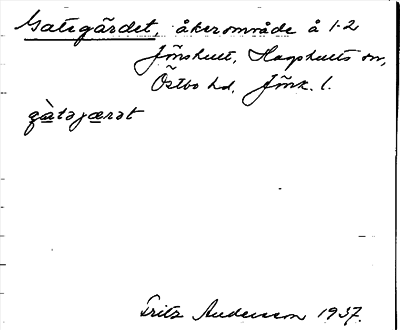 Gatugärdet, åkerområde å 1-2
Jönshult, Hagshults sn,
Östbo hd, Jönk. l.
gàtəjærət
Fritz Andersson 1937.